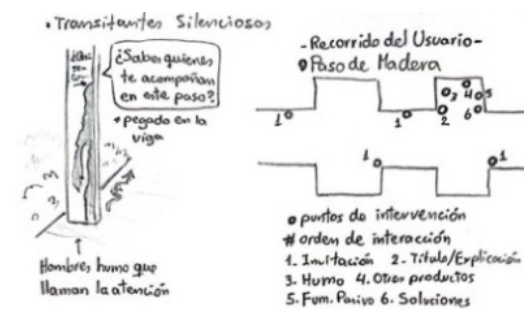 • Transitantes Silenciosos
¿Sabes quienes
te acompañan
en este paso?
* pegado en la
viga
Hombres humo que
llaman la atención
- Recorrido del Usuario -
Paso de Madera
1
1
2
3
4
5
6
1
1
puntos de intervención
# orden de interacción
1. Invitación 2. Título/Explicación
3. Humo 4. Otros productos
5. Fum. Pasivo 6. Soluciones